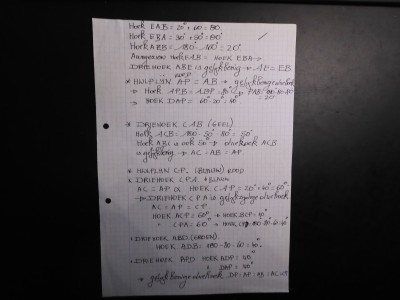 Hoek EAB = 20° + 60 = 80.
Hoek EBA = 30° + 50 = 80°.
Hoek AEB = 180 - 160° = 20°
Aangezien Hoek EAB = HOEK EBA →
DRIEHOEK ABE is gelijkbenig → AE = EB
* HULPLIJN AP = AB → gelijkbenige driehoek
→ Hoek APB = ABP = 80° → PAB = 180-80-80 = 20°
→ HOEK DAP = 60° - 20° = 40°
* DRIEHOEK CAB (GEEL)
Hoek ACB = 180 - 50 - 80 = 50°
Hoek ABC is ook 50° → driehoek ACB
is gelijkbenig → AC = AB = AP
* HULPLIJN CP
DRIEHOEK CPA
AC = AP & HOEK CAP = 20° + 40° = 60°
→ DRIEHOEK CPA is gelijkzijdige driehoek
AC = AP = CP
HOEK ACP = 60° → HOEK
CPA = 60° →
* DRIEHOEK ABD (GROEN)
HOEK ADB = 180 - 80 - 60 = 40°
* DRIEHOEK ADP HOEK ADP = 40°
DAP = 40°
→ gelijkbenige driehoek DP = AP = AB = AC = CP